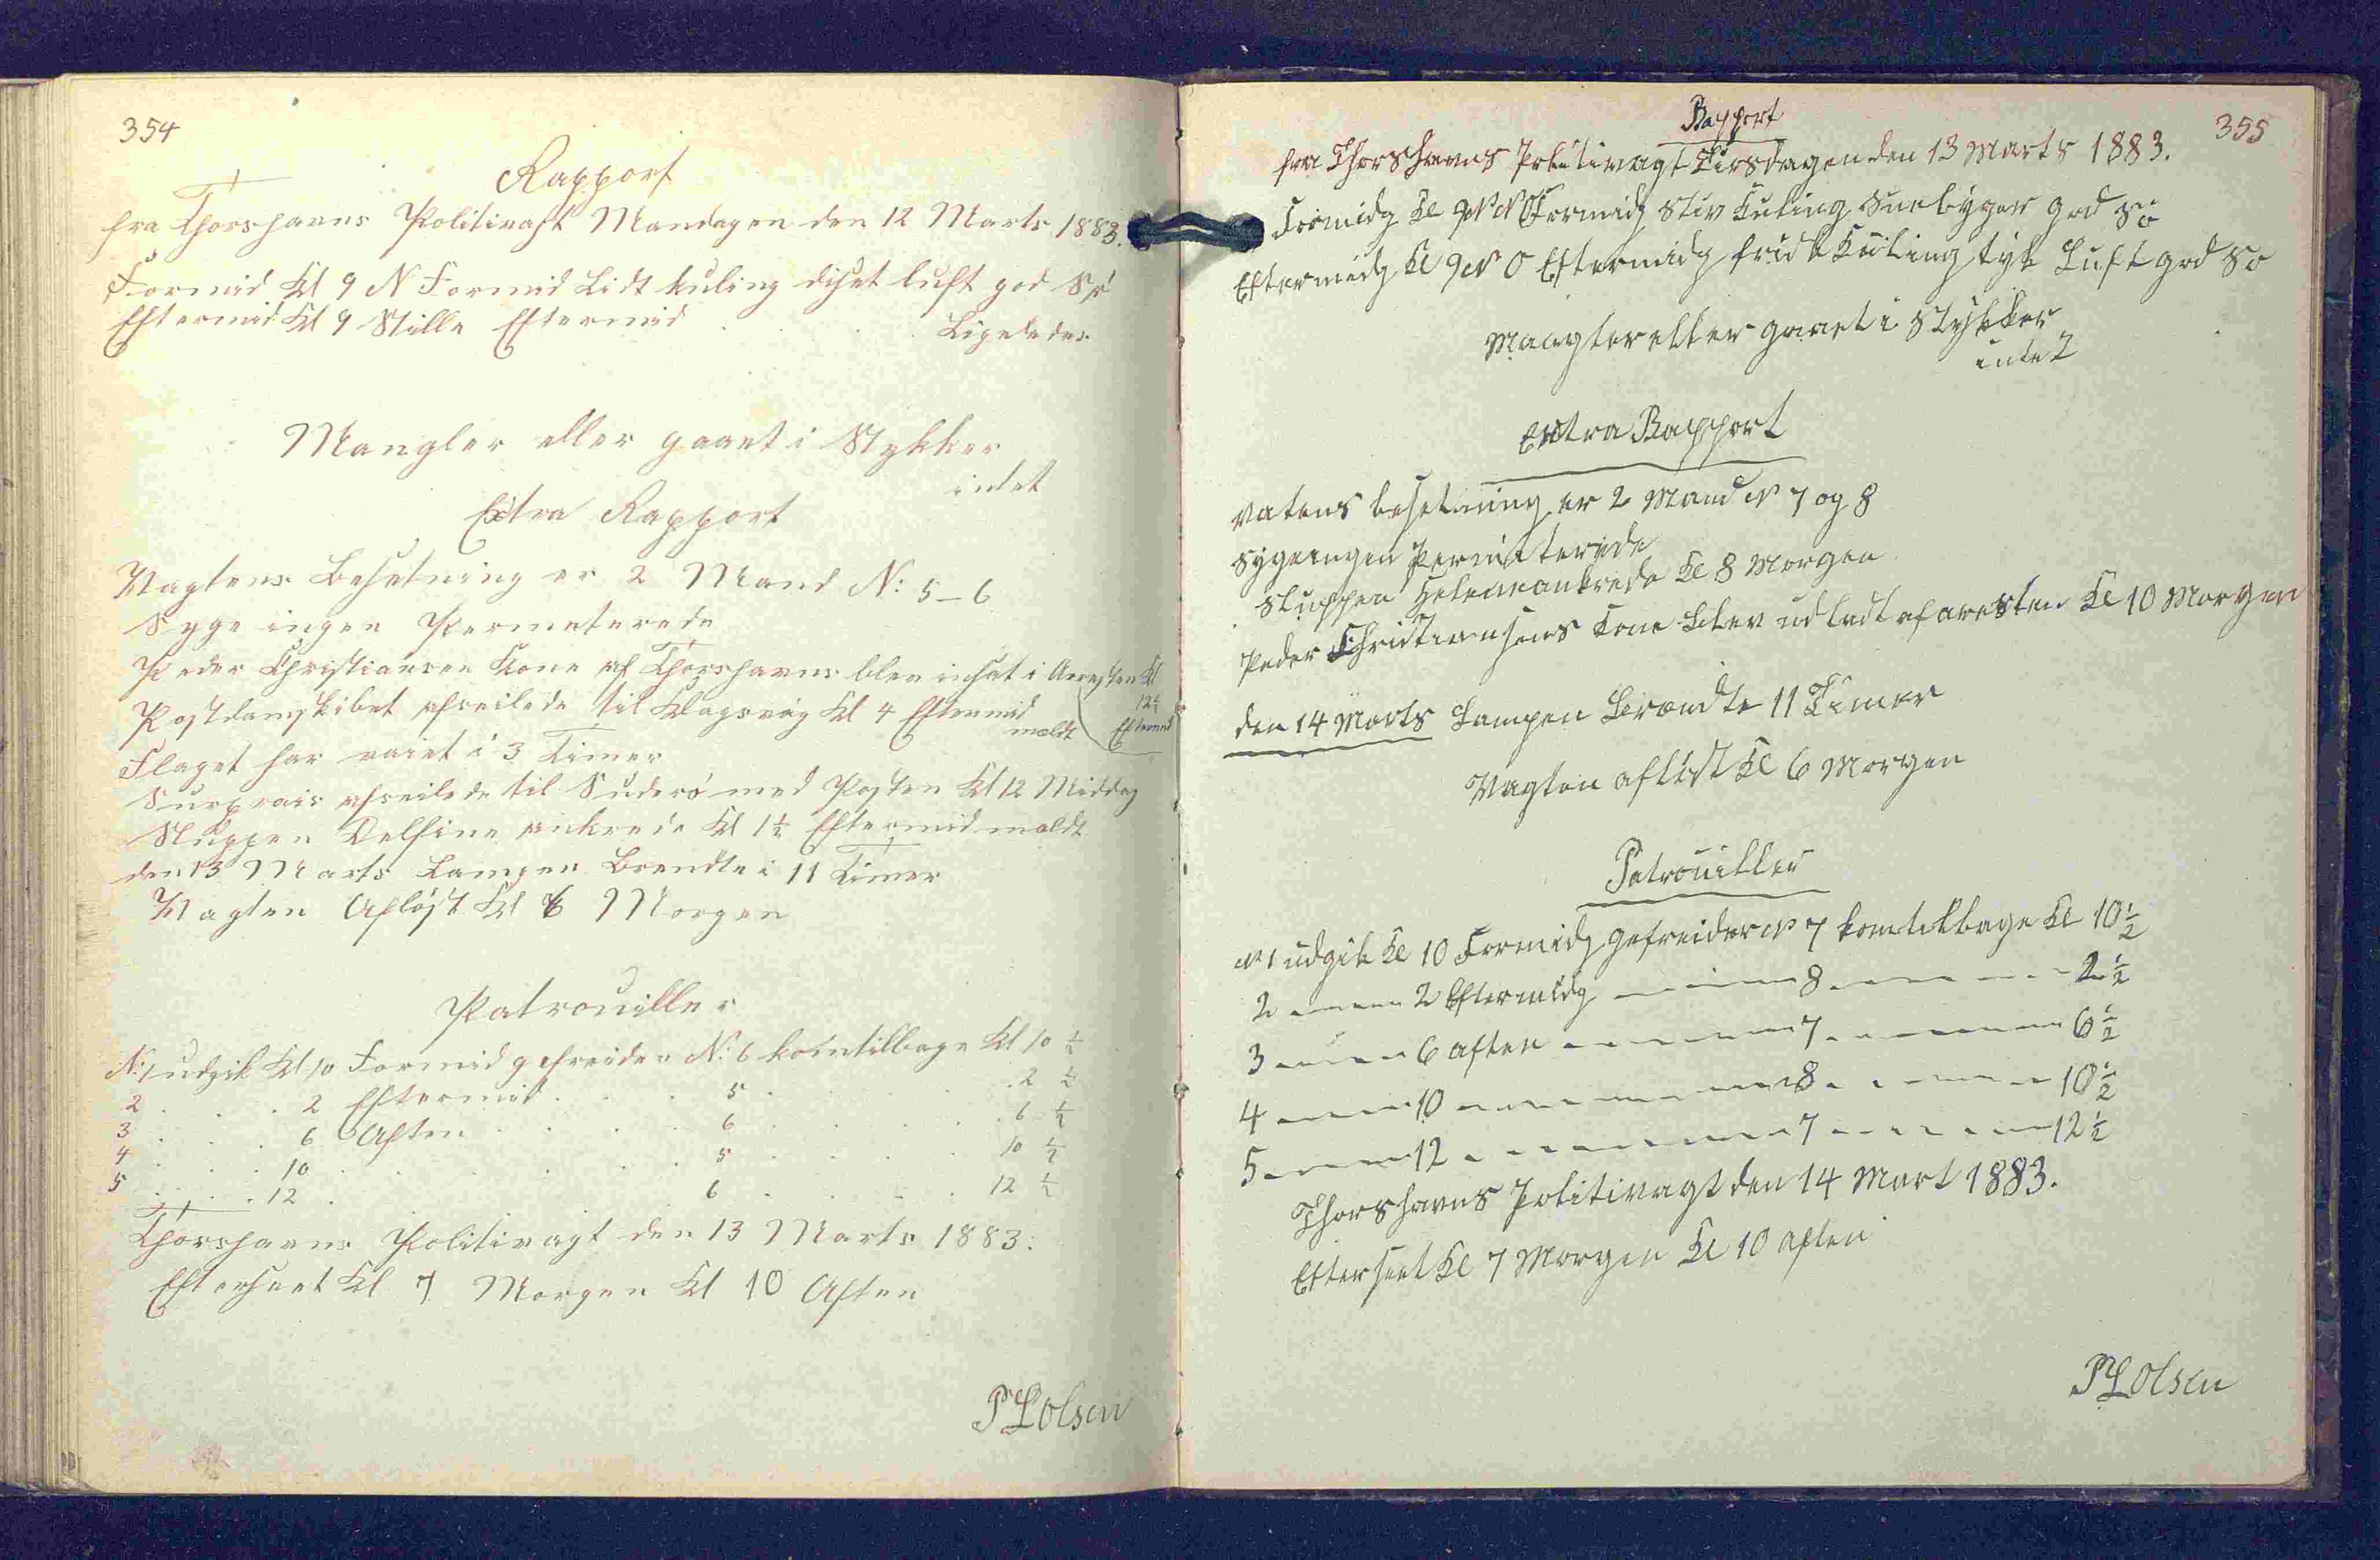 354
Rapport
fra Thorshavns Politivagt Mandagen den 12 Marts 1883.
Formid Kl 9 N Formid Lidt kuling diset luft god Sø
Eftermid Kl 9 Stille Eftermid . . . . Ligeledes
Mangler eller gaaet i Stykker
intet
Extra Rapport
Vagtens Besetning er 2 Mand N: 5-6
Syge ingen Permeterede
Peder Christiansen Kone af Thorshavns blev insat i Arresten Kl 12½ Eftermid
Postdampskibet afseilede til Klagsvig Kl 4 Eftermid
maldt
Flaget har vaiet i 3 Timer
Surprais afseilede til Suderø med Posten Kl 12 Middag
Sluppen Delfine ankrede Kl 1½ Eftermid maldt
den 13 Marts Lampen Brendte i 11 Timer
Vagten Afløst Kl 6 Morgen
Patrouiller
N: 1 udgik Kl 10 Formid gefreider N: 6 kom tilbage Kl 10 ½
2 . . . . 2 Eftermid . . . 5 . . . . . 2 ½
3 . . . . 6 Aften . . . . 6 . . . . . 6 ½
4 . . . . 10 . . . . . . 5 . . . . . 10 ½
5 . . . . 12 . . . . . . 6 . . . . . 12 ½
Thorshavns Politivagt den 13 Marts 1883.
Efterseet Kl 7 Morgen Kl 10 Aften
P L Olsen
355
Rapport
fra Thorshavns Politivagt Tirsdagen den 13 Marts 1883.
Formidg Kl 9 N N O Formidg Stiv Kuling Snebyger god Sø
Eftermidg Kl 9 N O Eftermidg frisk Kuling tyk Luft god Sø
Mangler eller gaaet i Stykker
intet
Extra Rapport
Vatens besetning er 2 Mand N 7 og 8
Syge ingen Permiterede
Sluppen Helene ankrede Kl 8 Morgen
Peder Christiansens Kone blev udladt af aresten Kl 10 Morgen
den 14 Marts Lampen Brændte 11 Timer
Vagten afløst Kl 6 Morgen
Patrouiller
N 1 udgik Kl 10 Formidg gefreider N 7 kom tilbage Kl 10½
2 ---- 2 Eftermidg ---- 8 ---- 2½
3 ---- 6 aften ---- 7 ---- 6½
4 ---- 10 ---- 8 ---- 10½
5 ---- 12 ---- 7 ---- 12½
Thorshavns Politivagt den 14 Mart 1883.
Efterseet Kl 7 Morgen Kl 10 aften
P L Olsen